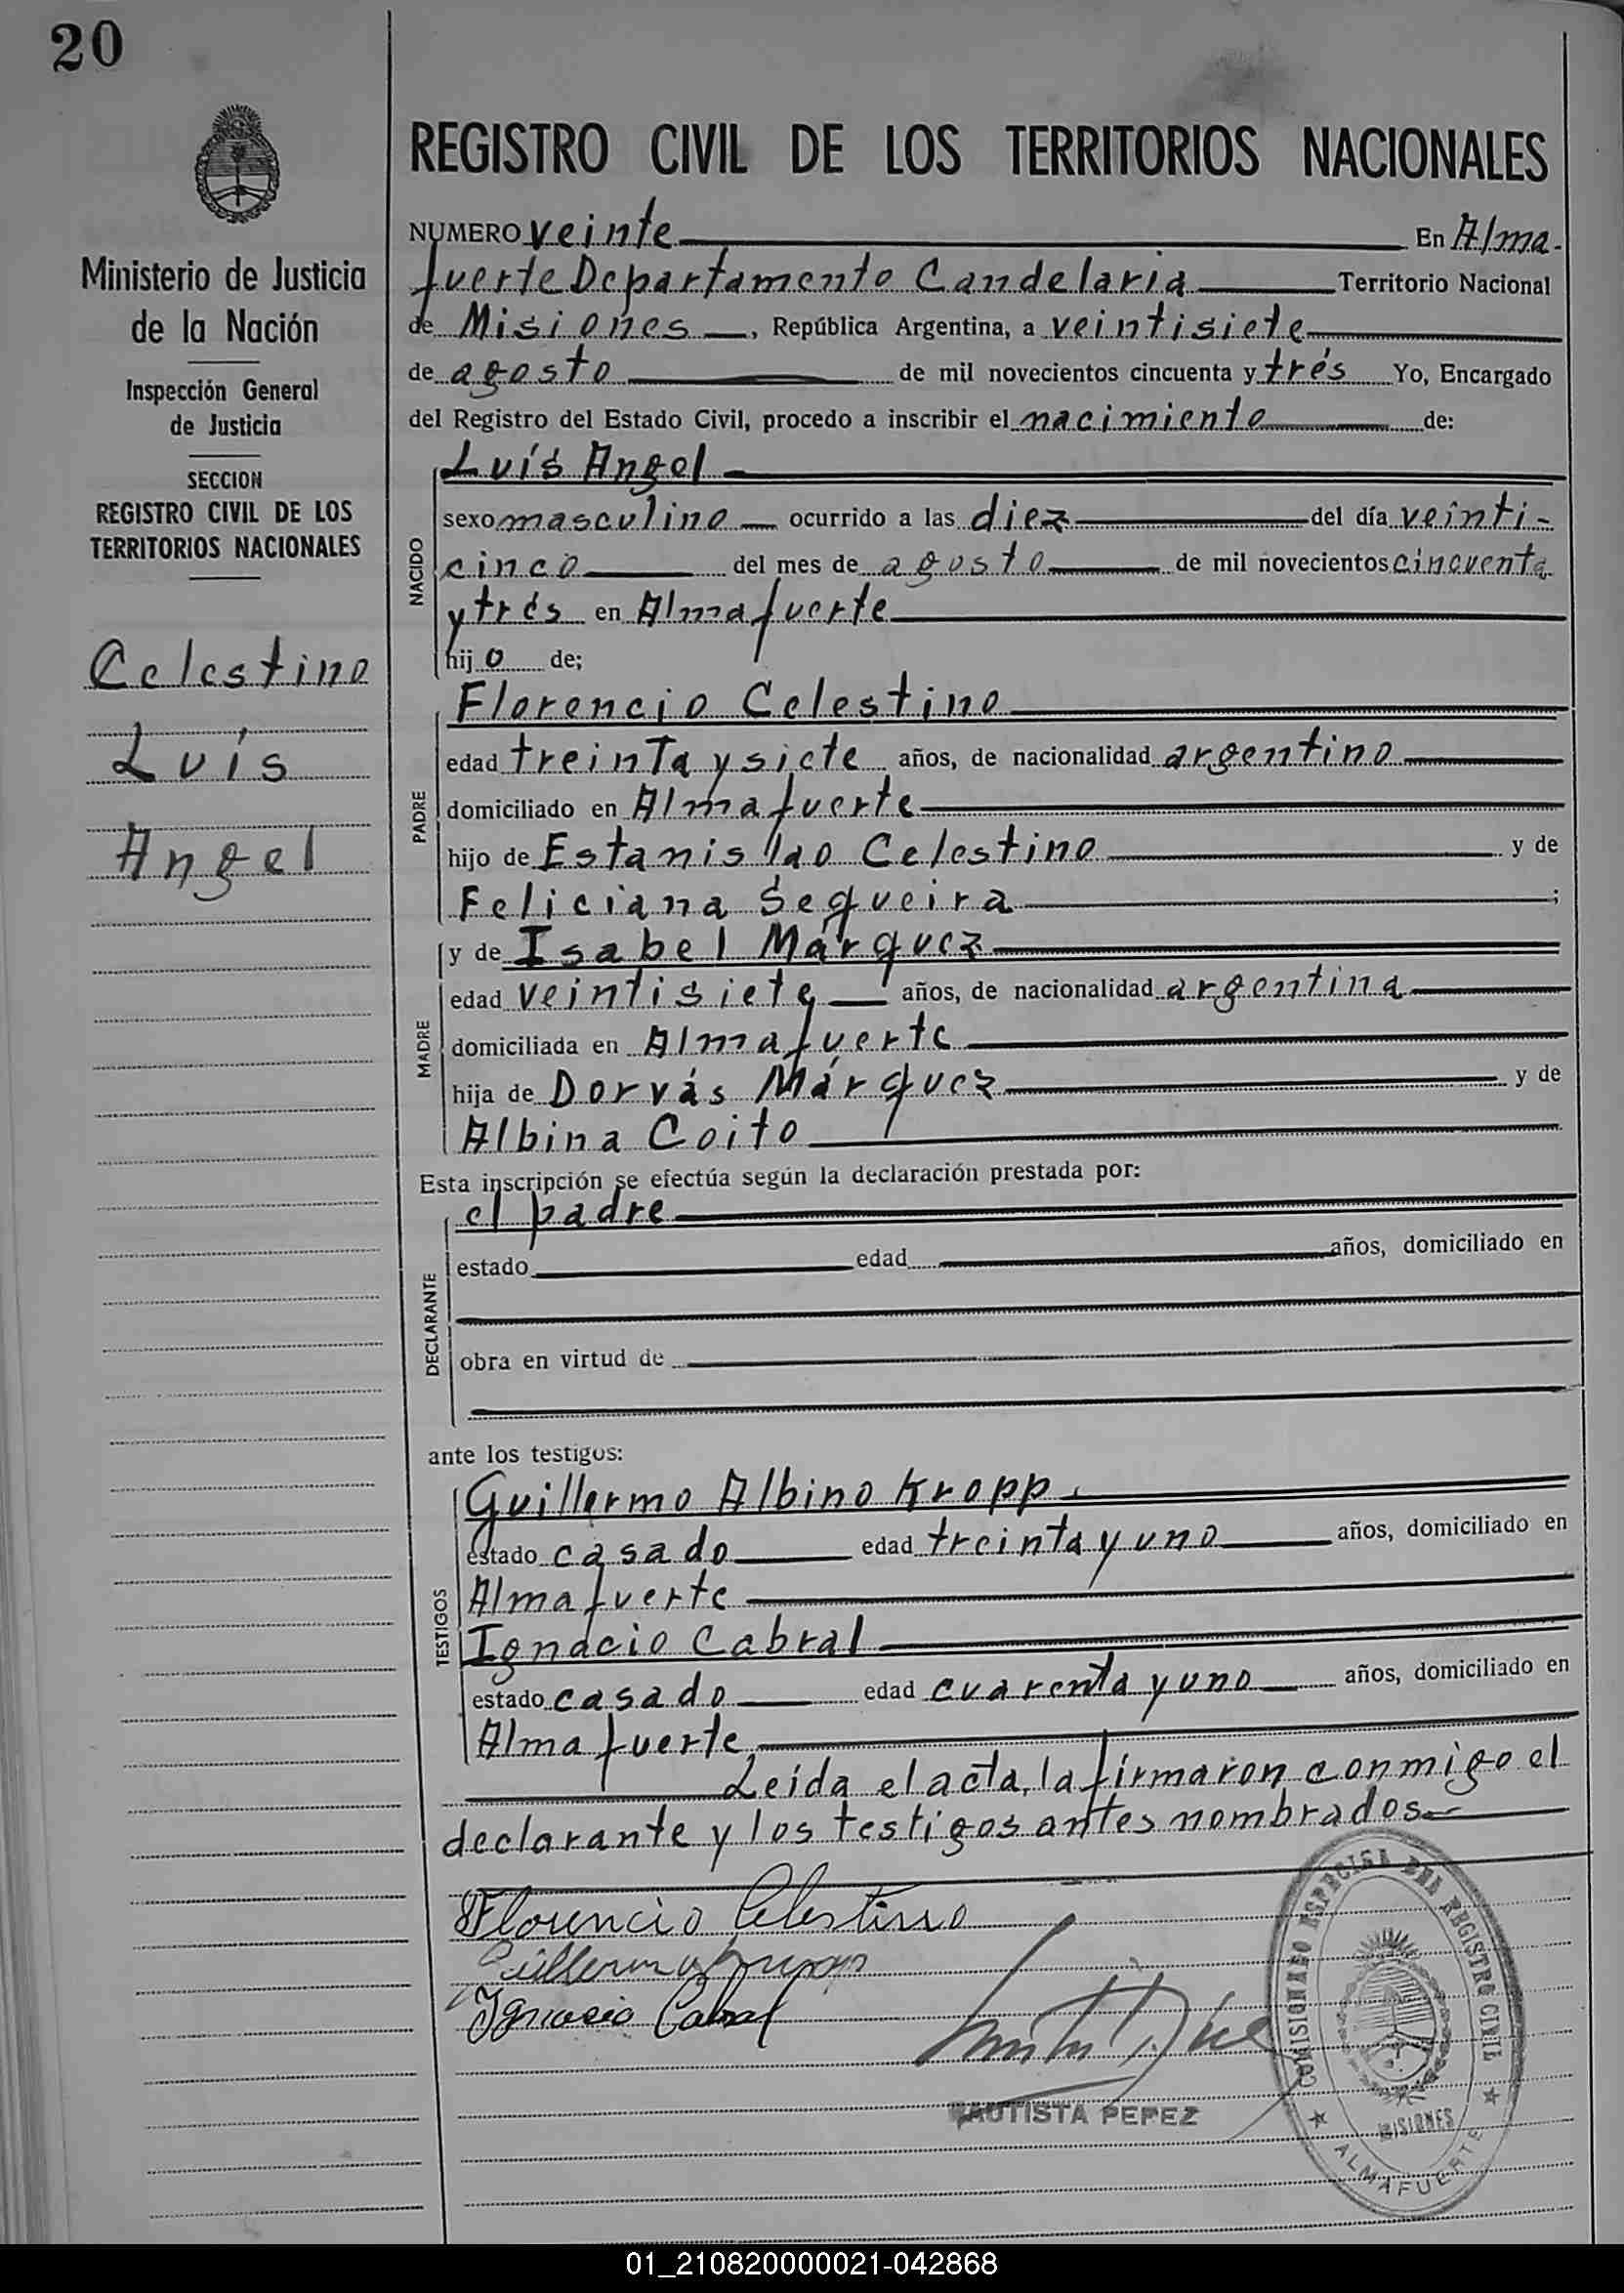 20
Ministerio de Justicia
de la Nación
Inspección General
de Justicia
SECCION
REGISTRO CIVIL DE LOS
TERRITORIOS NACIONALES
Celestino
Luís
Angel
REGISTRO CIVIL DE LOS TERRITORIOS NACIONALES
NUMERO veinte En Alma-
fuerte Departamento Candelaria Territorio Nacional
de Misiones, República Argentina, a veintisiete
de agosto de mil novecientos cincuenta y trés Yo, Encargado
del Registro del Estado Civil, procedo a inscribir el nacimiento de:
NACIDO
Luís Angel
sexo masculino ocurrido a las diez del día veinti-
cinco del mes de agosto de mil novecientos cincuenta
y trés en Almafuerte
hijo de;
PADRE
Florencio Celestino
edad treinta y siete años, de nacionalidad argentino
domiciliado en Almafuerte
hijo de Estanislao Celestino y de
Feliciana Seqveira ;
MADRE
y de Isabel Márquez
edad veintisiete años, de nacionalidad argentina
domiciliada en Almafuerte
hija de Dorvás Márquez y de
Albina Coito
Esta inscripción se efectúa según la declaración prestada por:
DECLARANTE
el padre
estado edad años, domiciliado en
obra en virtud de
ante los testigos:
TESTIGOS
Guillermo Albino Kropp.
estado casado edad treinta y uno años, domiciliado en
Almafuerte
Ignacio Cabral
estado casado edad cuarenta y uno años, domiciliado en
Almafuerte
Leída el acta, la firmaron conmigo el
declarante y los testigos antes nombrados
Florencio Celestino
Ignacio Cabral
BAUTISTA PEPEZ
COMISIONADO ESPECIAL DEL REGISTRO CIVIL
MISIONES
ALMAFUERTE
01_210820000021-042868